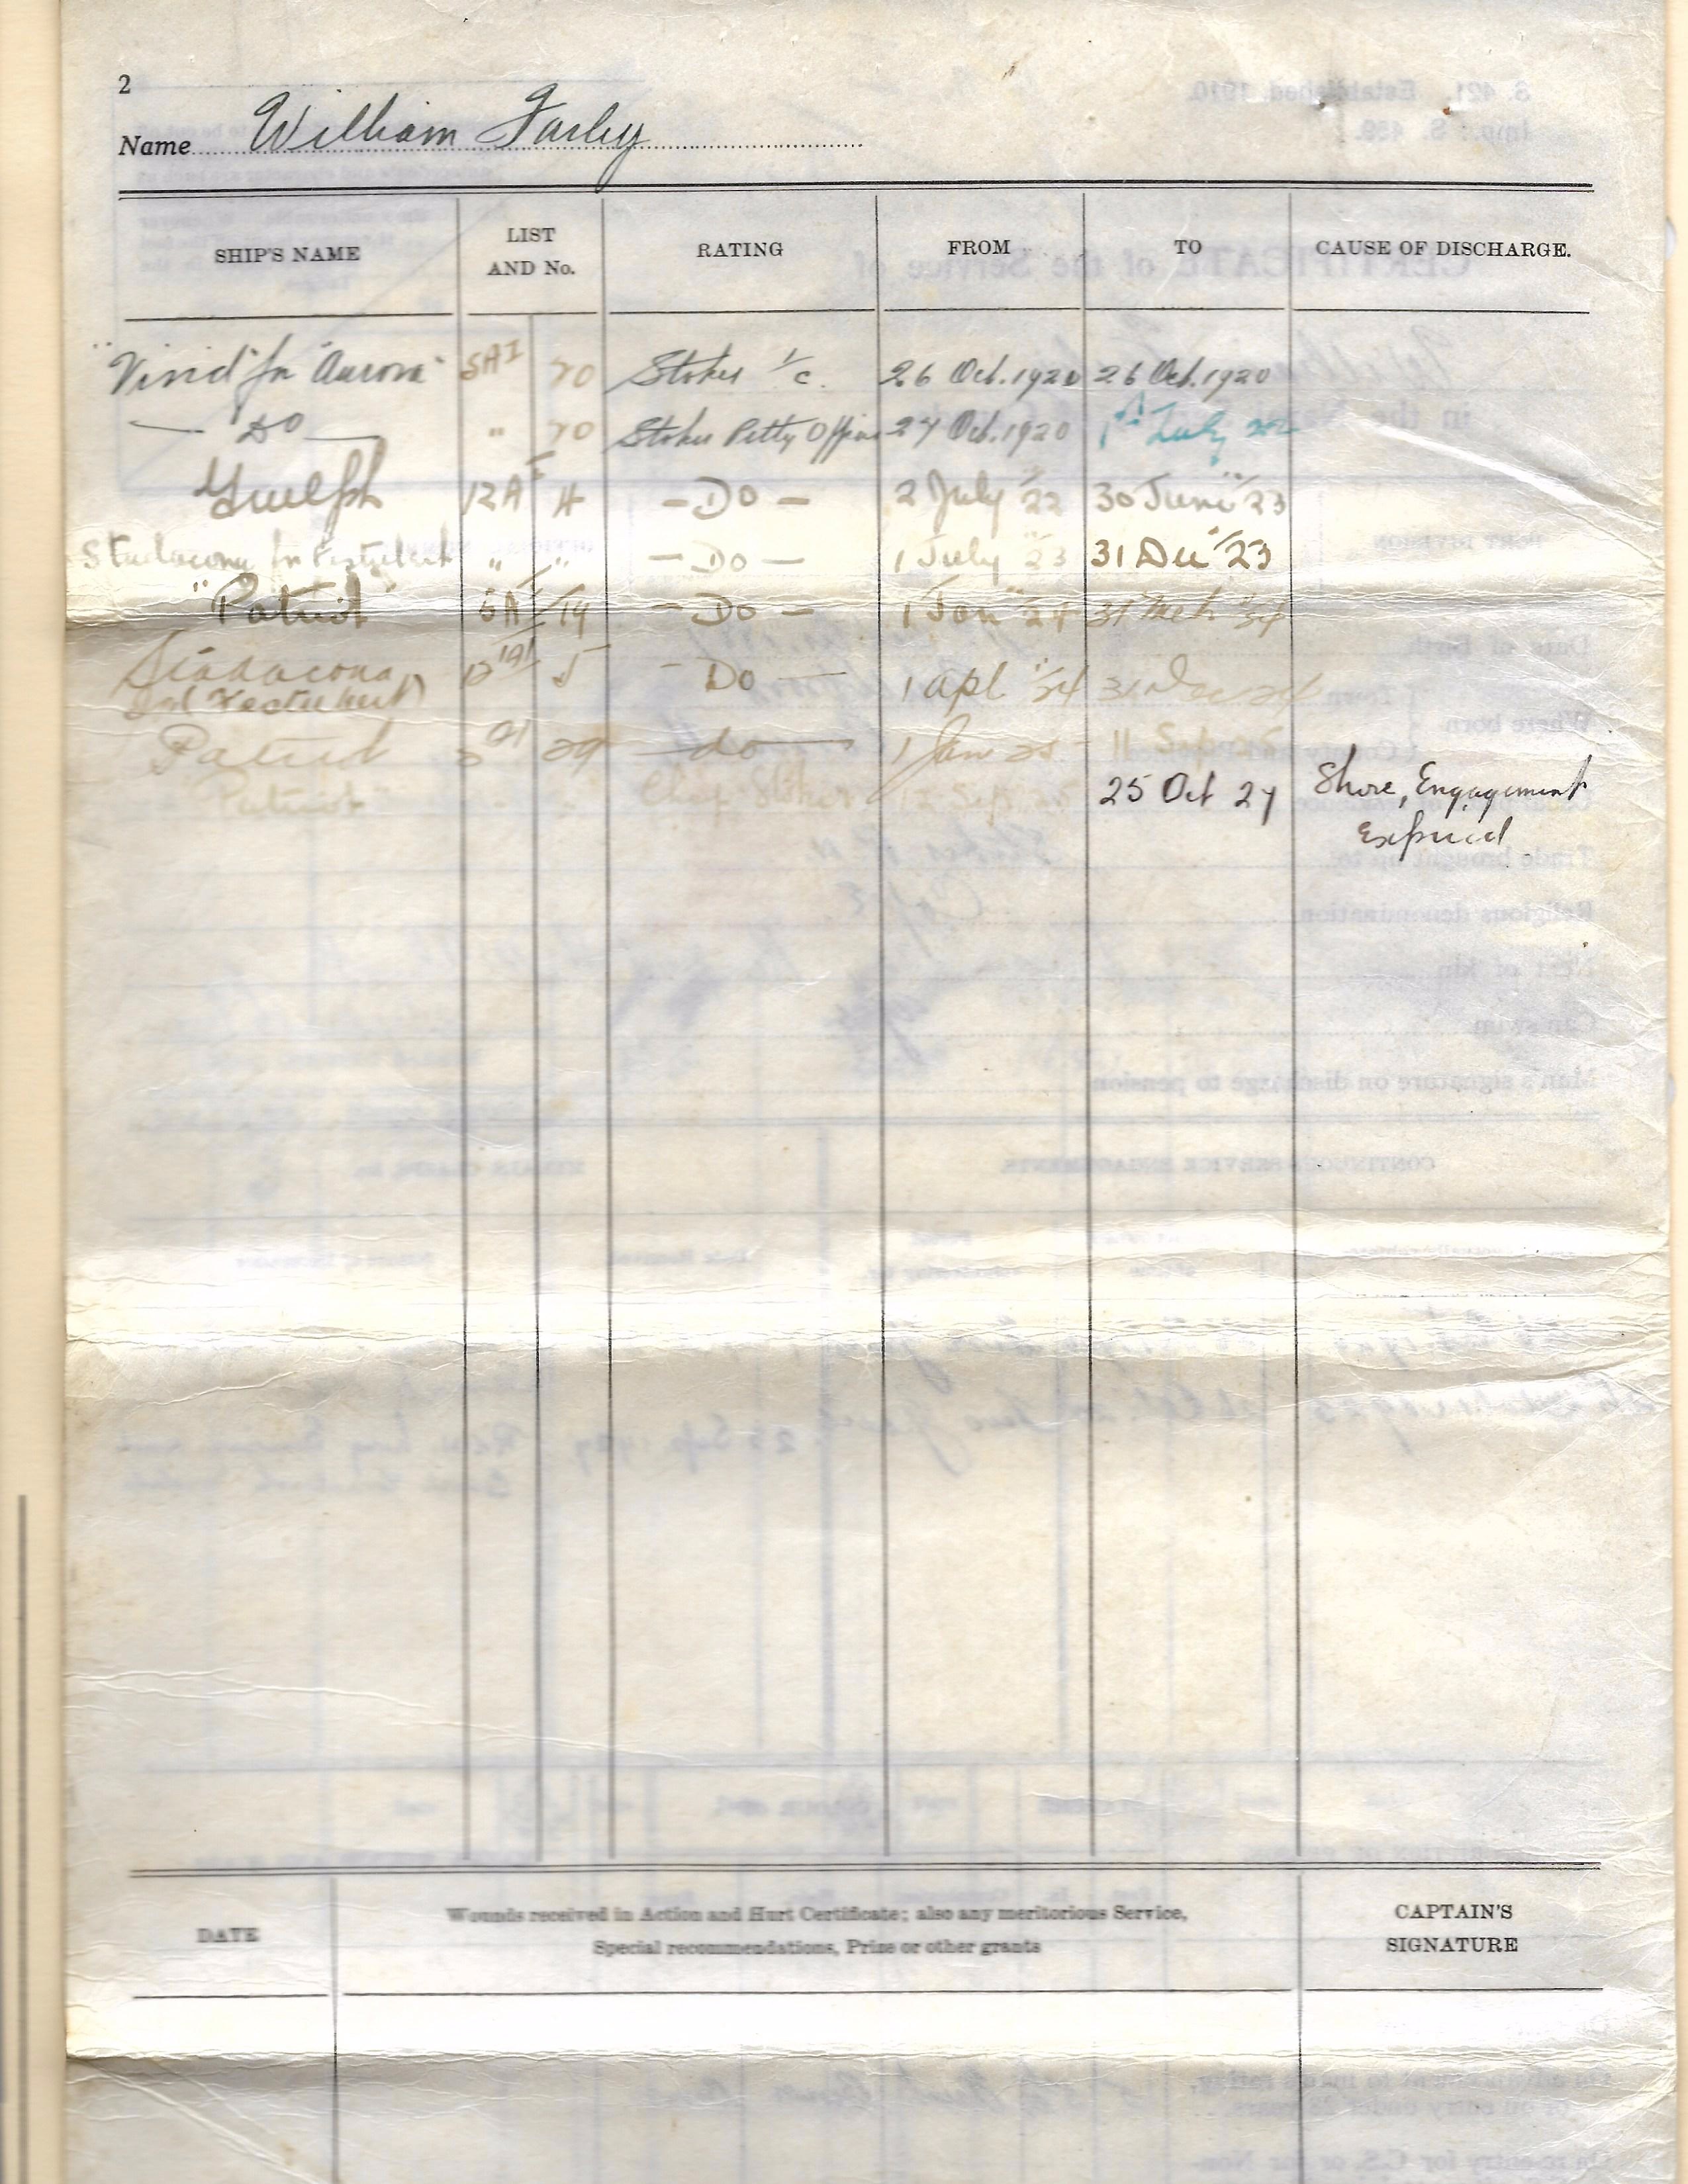 2
Name William Farley
SHIP'S NAME LIST AND No. RATING FROM TO CAUSE OF DISCHARGE.
"Vivid" for "Aurora" 5A I 70 Stoker 1/c. 26 Oct. 1920 26 Oct. 1920
— Do — " 70 Stoker Petty Officer 27 Oct. 1920 1st July
Guelph 12A I 4 — Do — 2 July "22 30 June "23
Stadacona for Festubert " " — Do — 1 July "23 31 Dec "23
"Patriot" 5A I 19 — Do — 1 Jan "24 31 Mch "24
Stadacona 5 - Do — 1 Apl "24 31 Dec 24
Festubert
Patriot 29 — do — 1 Jan 25 - 11 Sep 25
Patriot Chief Stoker 12 Sep 25 25 Oct 27 Shore, Engagement
Expired
DATE Wounds received in Action and Hurt Certificate; also any meritorious Service, CAPTAIN'S
Special recommendations, Prize or other grants SIGNATURE